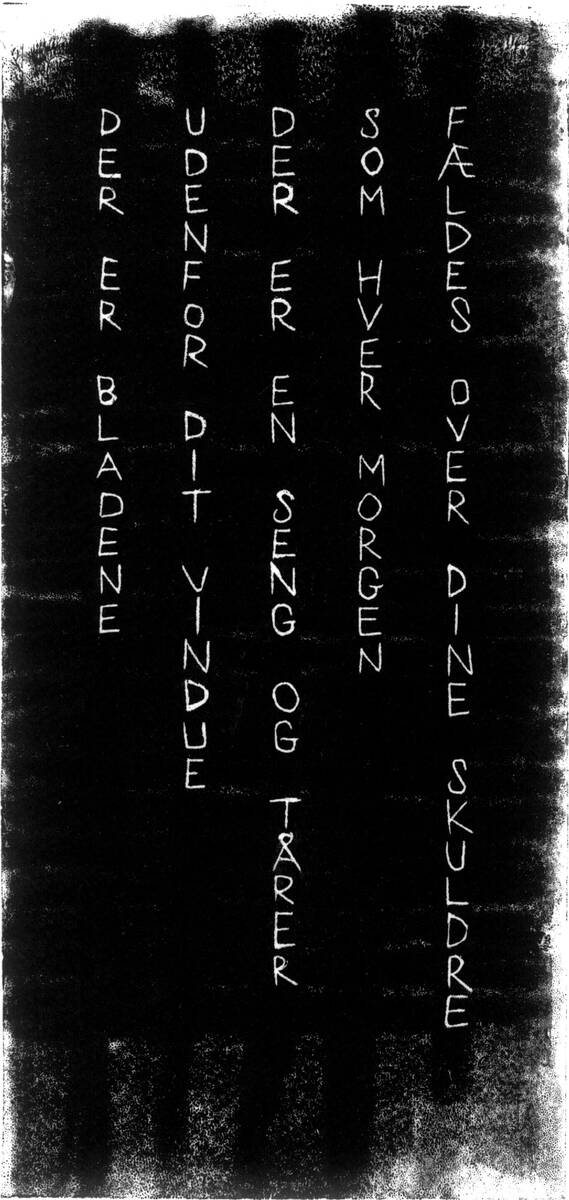 DER ER BLADENE
UDENFOR DIT VINDUE
DER ER EN SENG OG TÅRER
SOM HVER MORGEN
FÆLDES OVER DINE SKULDRE